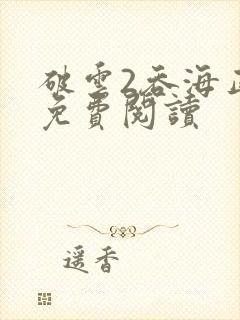 破雲2吞海正
免費閱讀
遥香